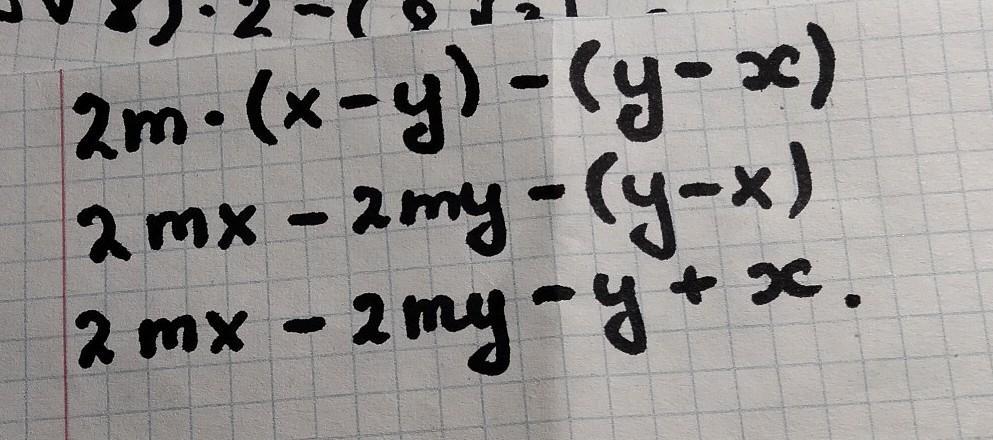 2m·(x-y)-(y-x)
2mx-2my-(y-x)
2mx-2my-y+x.